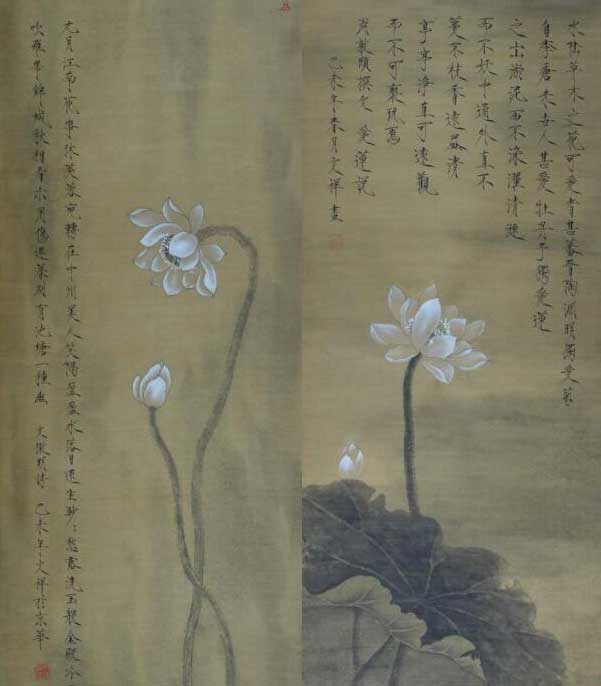 水陸草木之花可愛者甚蕃晉陶淵明獨愛菊
自李唐来世人甚愛牡丹予獨愛蓮
之出淤泥而不染濯清漣
而不妖中通外直不
蔓不枝香遠益清
亭亭淨直可遠觀
而不可褻玩焉
周敦頤撰文愛蓮說
己未年春月文祥畫
九月江南花事休芙蓉宛轉在中州美人笑隔盈盈水落日還生眇々愁露洗玉盤金殿冷
吹羅帶錦城秋相看未用傷遲暮別有池塘一種幽 文徵明詩 己未年文祥於京華